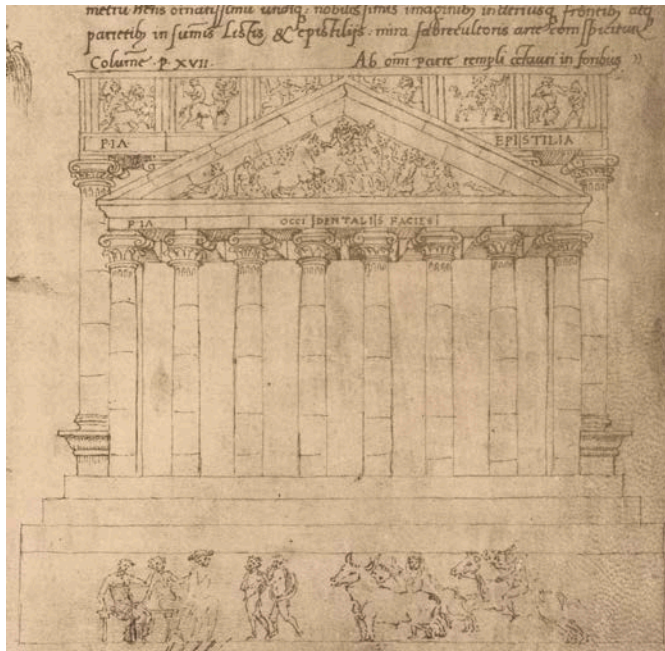 metru hens ornatissimu undiq: nobilissimis imaginib; in teriusq, frontib; atq
parietib; in sumis Listis & epistilijs: mira fabrecultoris arte conspicitur
Colume. P. XVII. Ab omi parte templi
in foribus
P·IA· EPISTILIA
P·IA OCCIDENTALIS FACIES